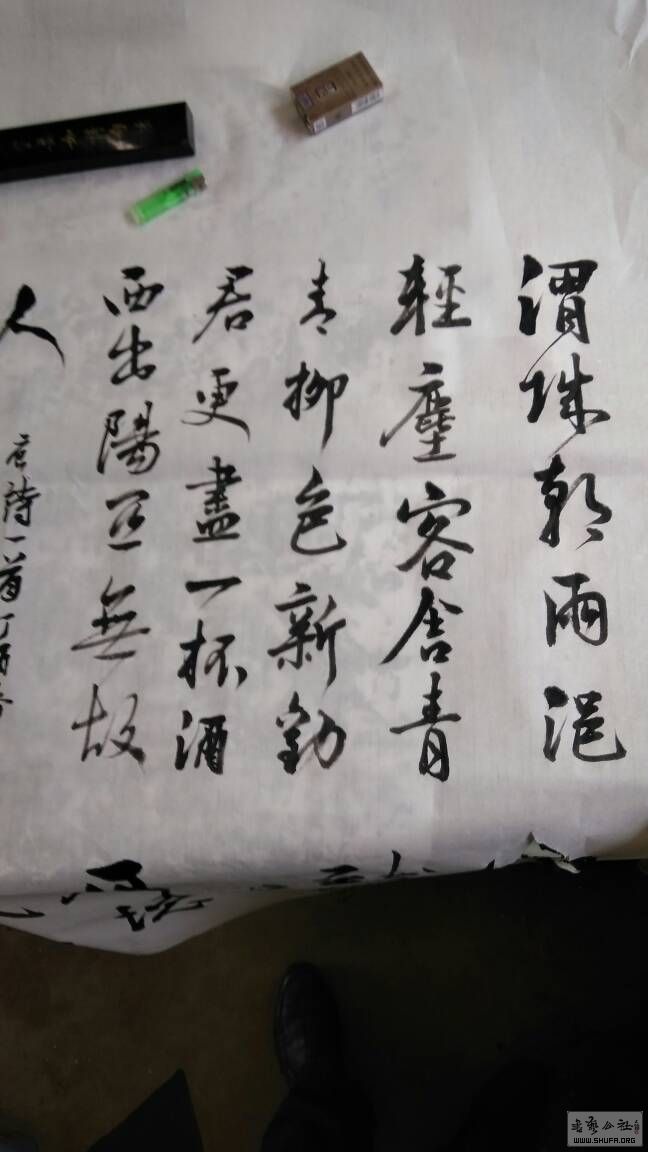 渭城朝雨浥
輕塵客舍青
青柳色新勸
君更盡一杯酒
西出陽关無故
人
唐詩一首丁酉
WWW.SHUFA.ORG